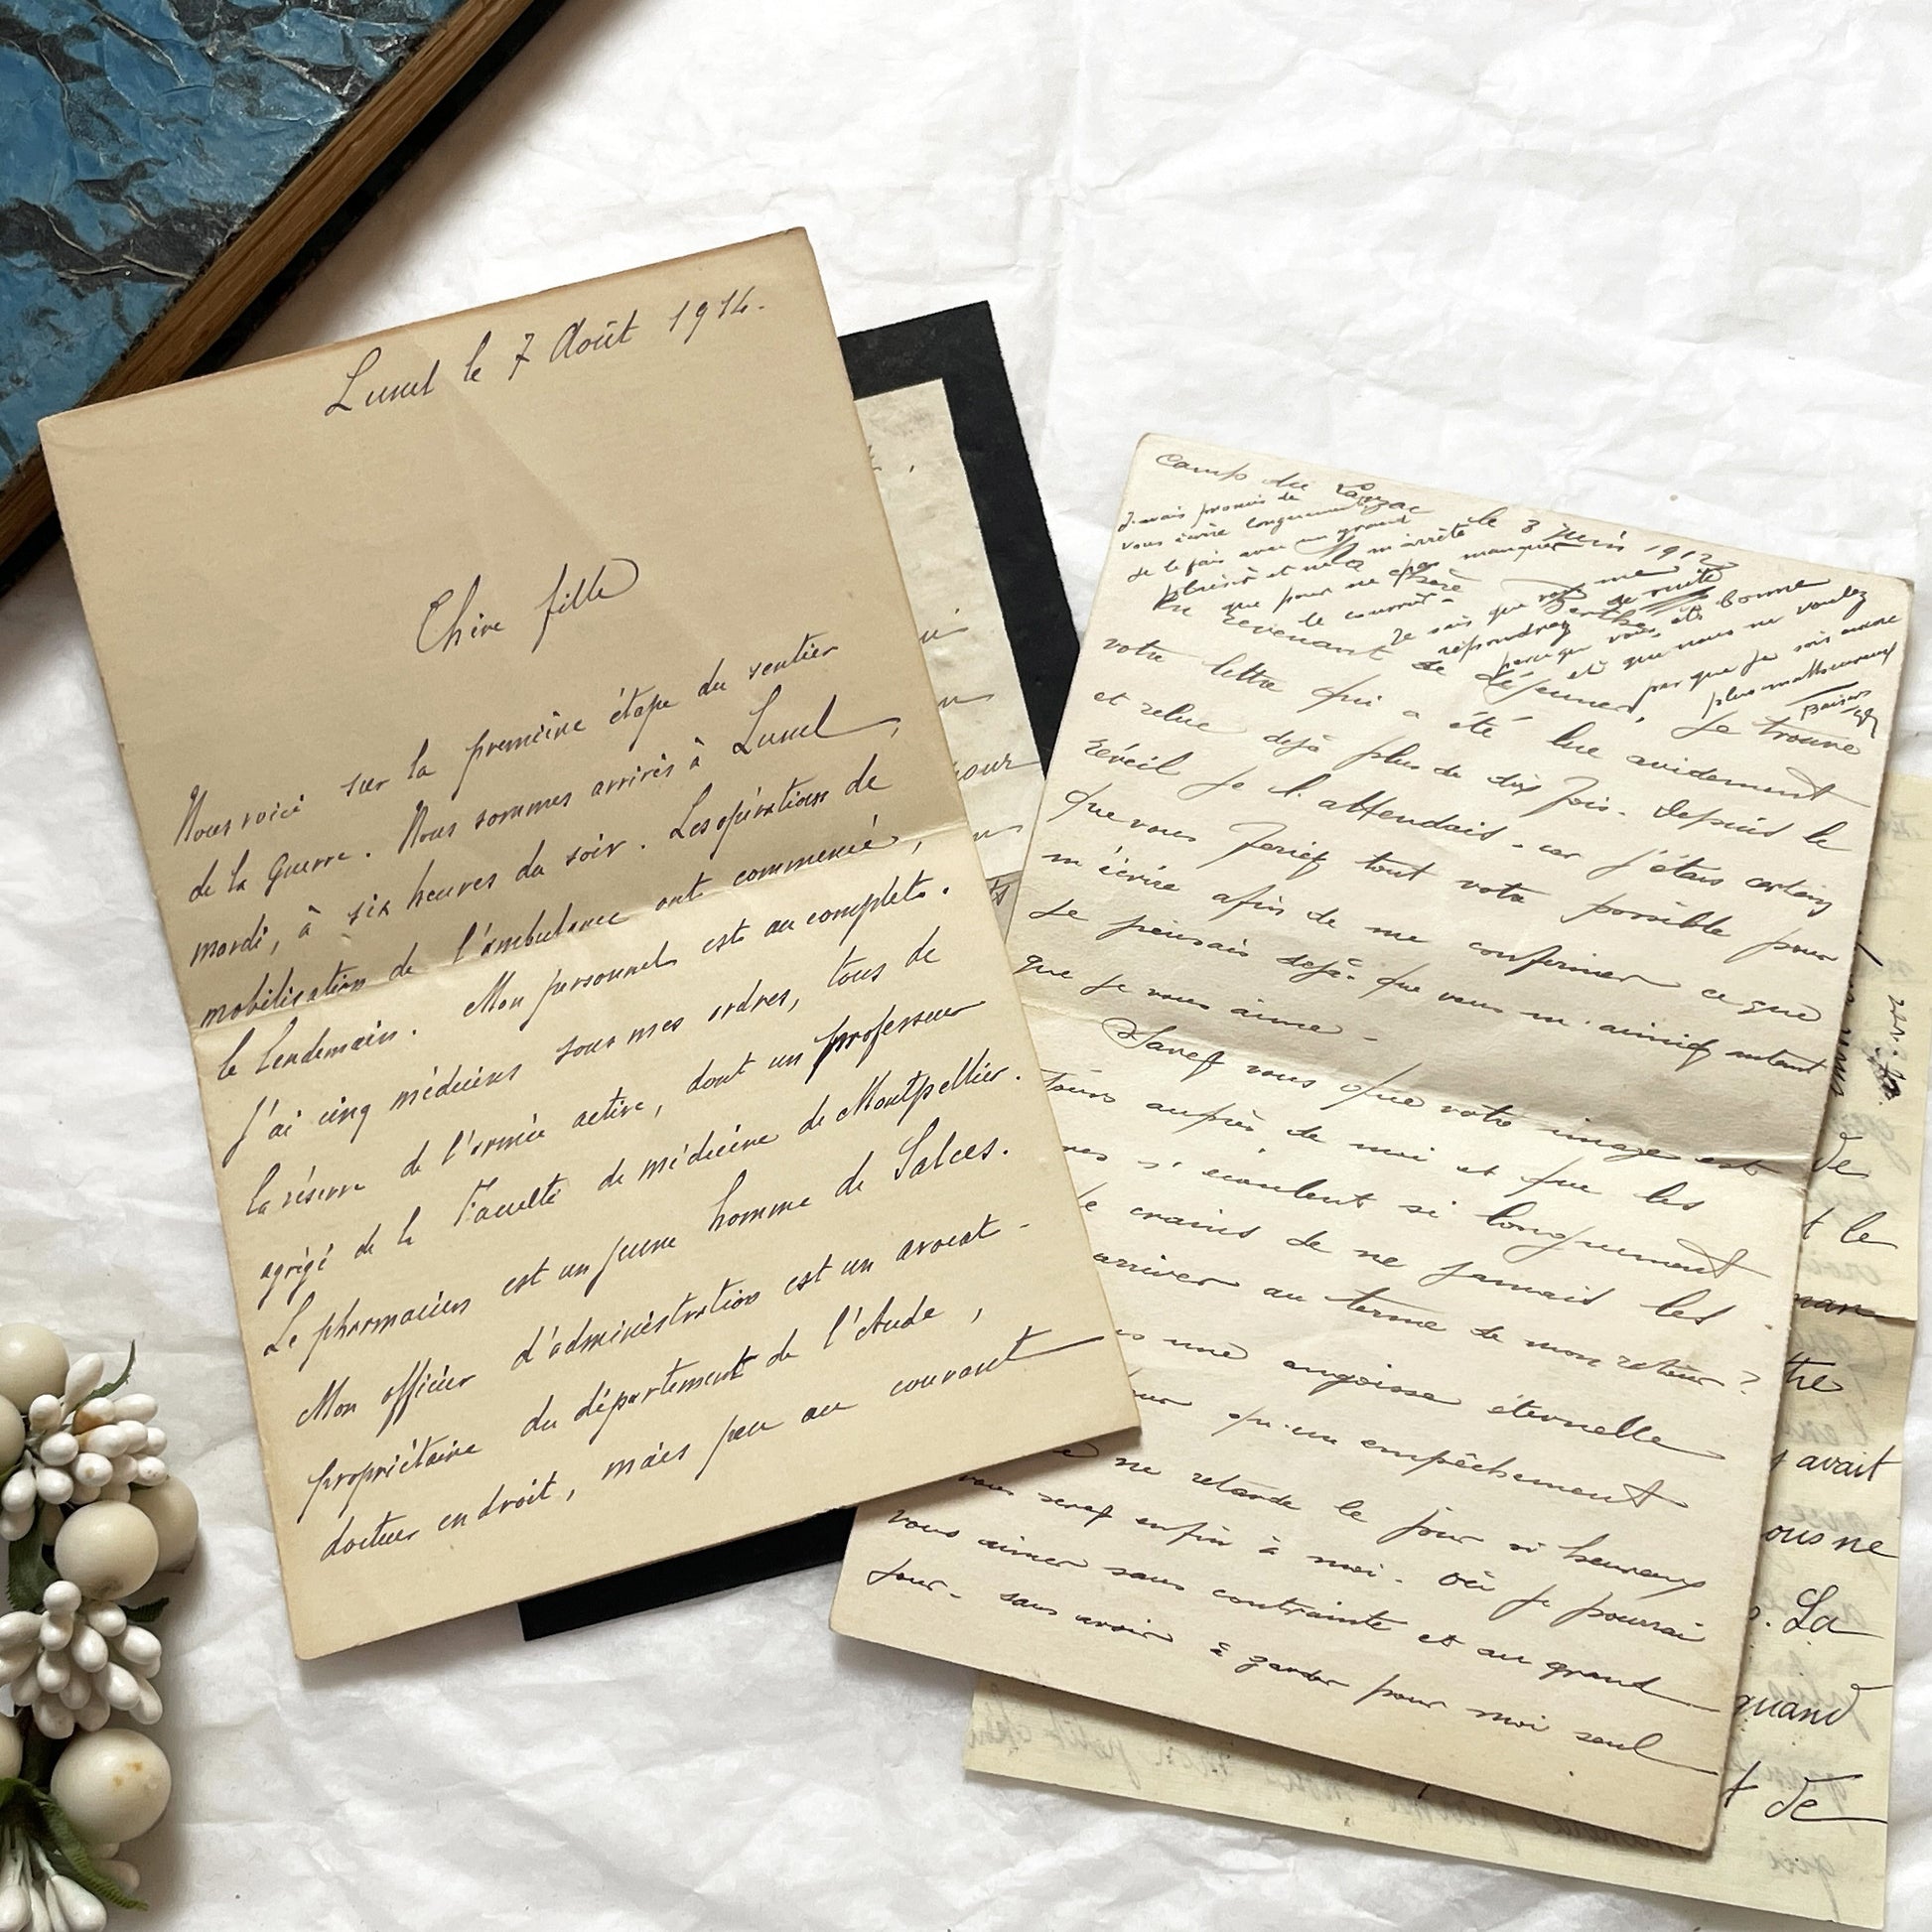 Lunel le 7 Août 1914.
Chère fille
Nous voici sur la première étape du sentier
de la guerre. Nous sommes arrivés à Lunel,
mardi, à six heures du soir. Les opérations de
mobilisation de l'ambulance ont commencé,
le lendemain. Mon personnel est au complet.
J'ai cinq médecins sous mes ordres, tous de
la réserve de l'armée active, dont un professeur
agrégé de la Faculté de médecine de Montpellier.
Le pharmacien est un jeune homme de Salces.
Mon officier d'administration est un avocat-
propriétaire du département de l'Aude,
docteur en droit, mais peu au courant
Camp du Larzac le 3 Juin 1912
J'avais promis de
vous écrire longuement
je le fais avec un grand
plaisir et ne m'arrête
que pour ne pas manquer
le courrier.
Je sais que vous me
répondrez de suite
parce que vous êtes bonne
et que vous ne voulez
pas que je sois encore
plus malheureux
Chère Berthe
En revenant de déjeuner, je trouve
votre lettre qui a été lue avidement
et relue déjà plus de dix fois. Depuis le
réveil je l'attendais, car j'étais certain
que vous feriez tout votre possible pour
m'écrire afin de me confirmer ce que
je pensais déjà. que vous m'aimiez autant
que je vous aime.
Savez vous que votre image est
tours auprès de moi et que les
res s'écoulent si longuement
je crains de ne jamais les
arriver au terme de mon retour?
une angoisse éternelle
qu'un empêchement
ne retarde le jour si heureux
vous serez enfin à moi. Où je pourrai
vous aimer sans contrainte et au grand
jour. sans avoir à garder pour moi seul
pour
de
t le
tre
avait
ous ne
. La
quand
t de